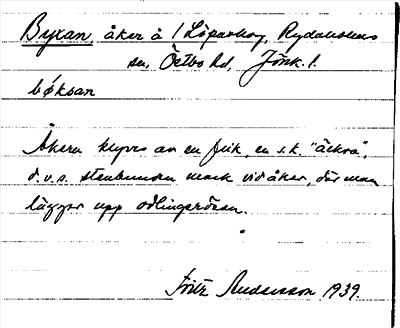 Byxan, åker å 1 Löparskog, Rydaholms
sn, Östbo hd, Jönk. l.
bøksan
Åkern klyves av en flik, en s.k. "äckra",
d.v.s. stenbunden mark vid åker, där man
lägger upp odlingsrösen.
Fritz Andersson 1939.